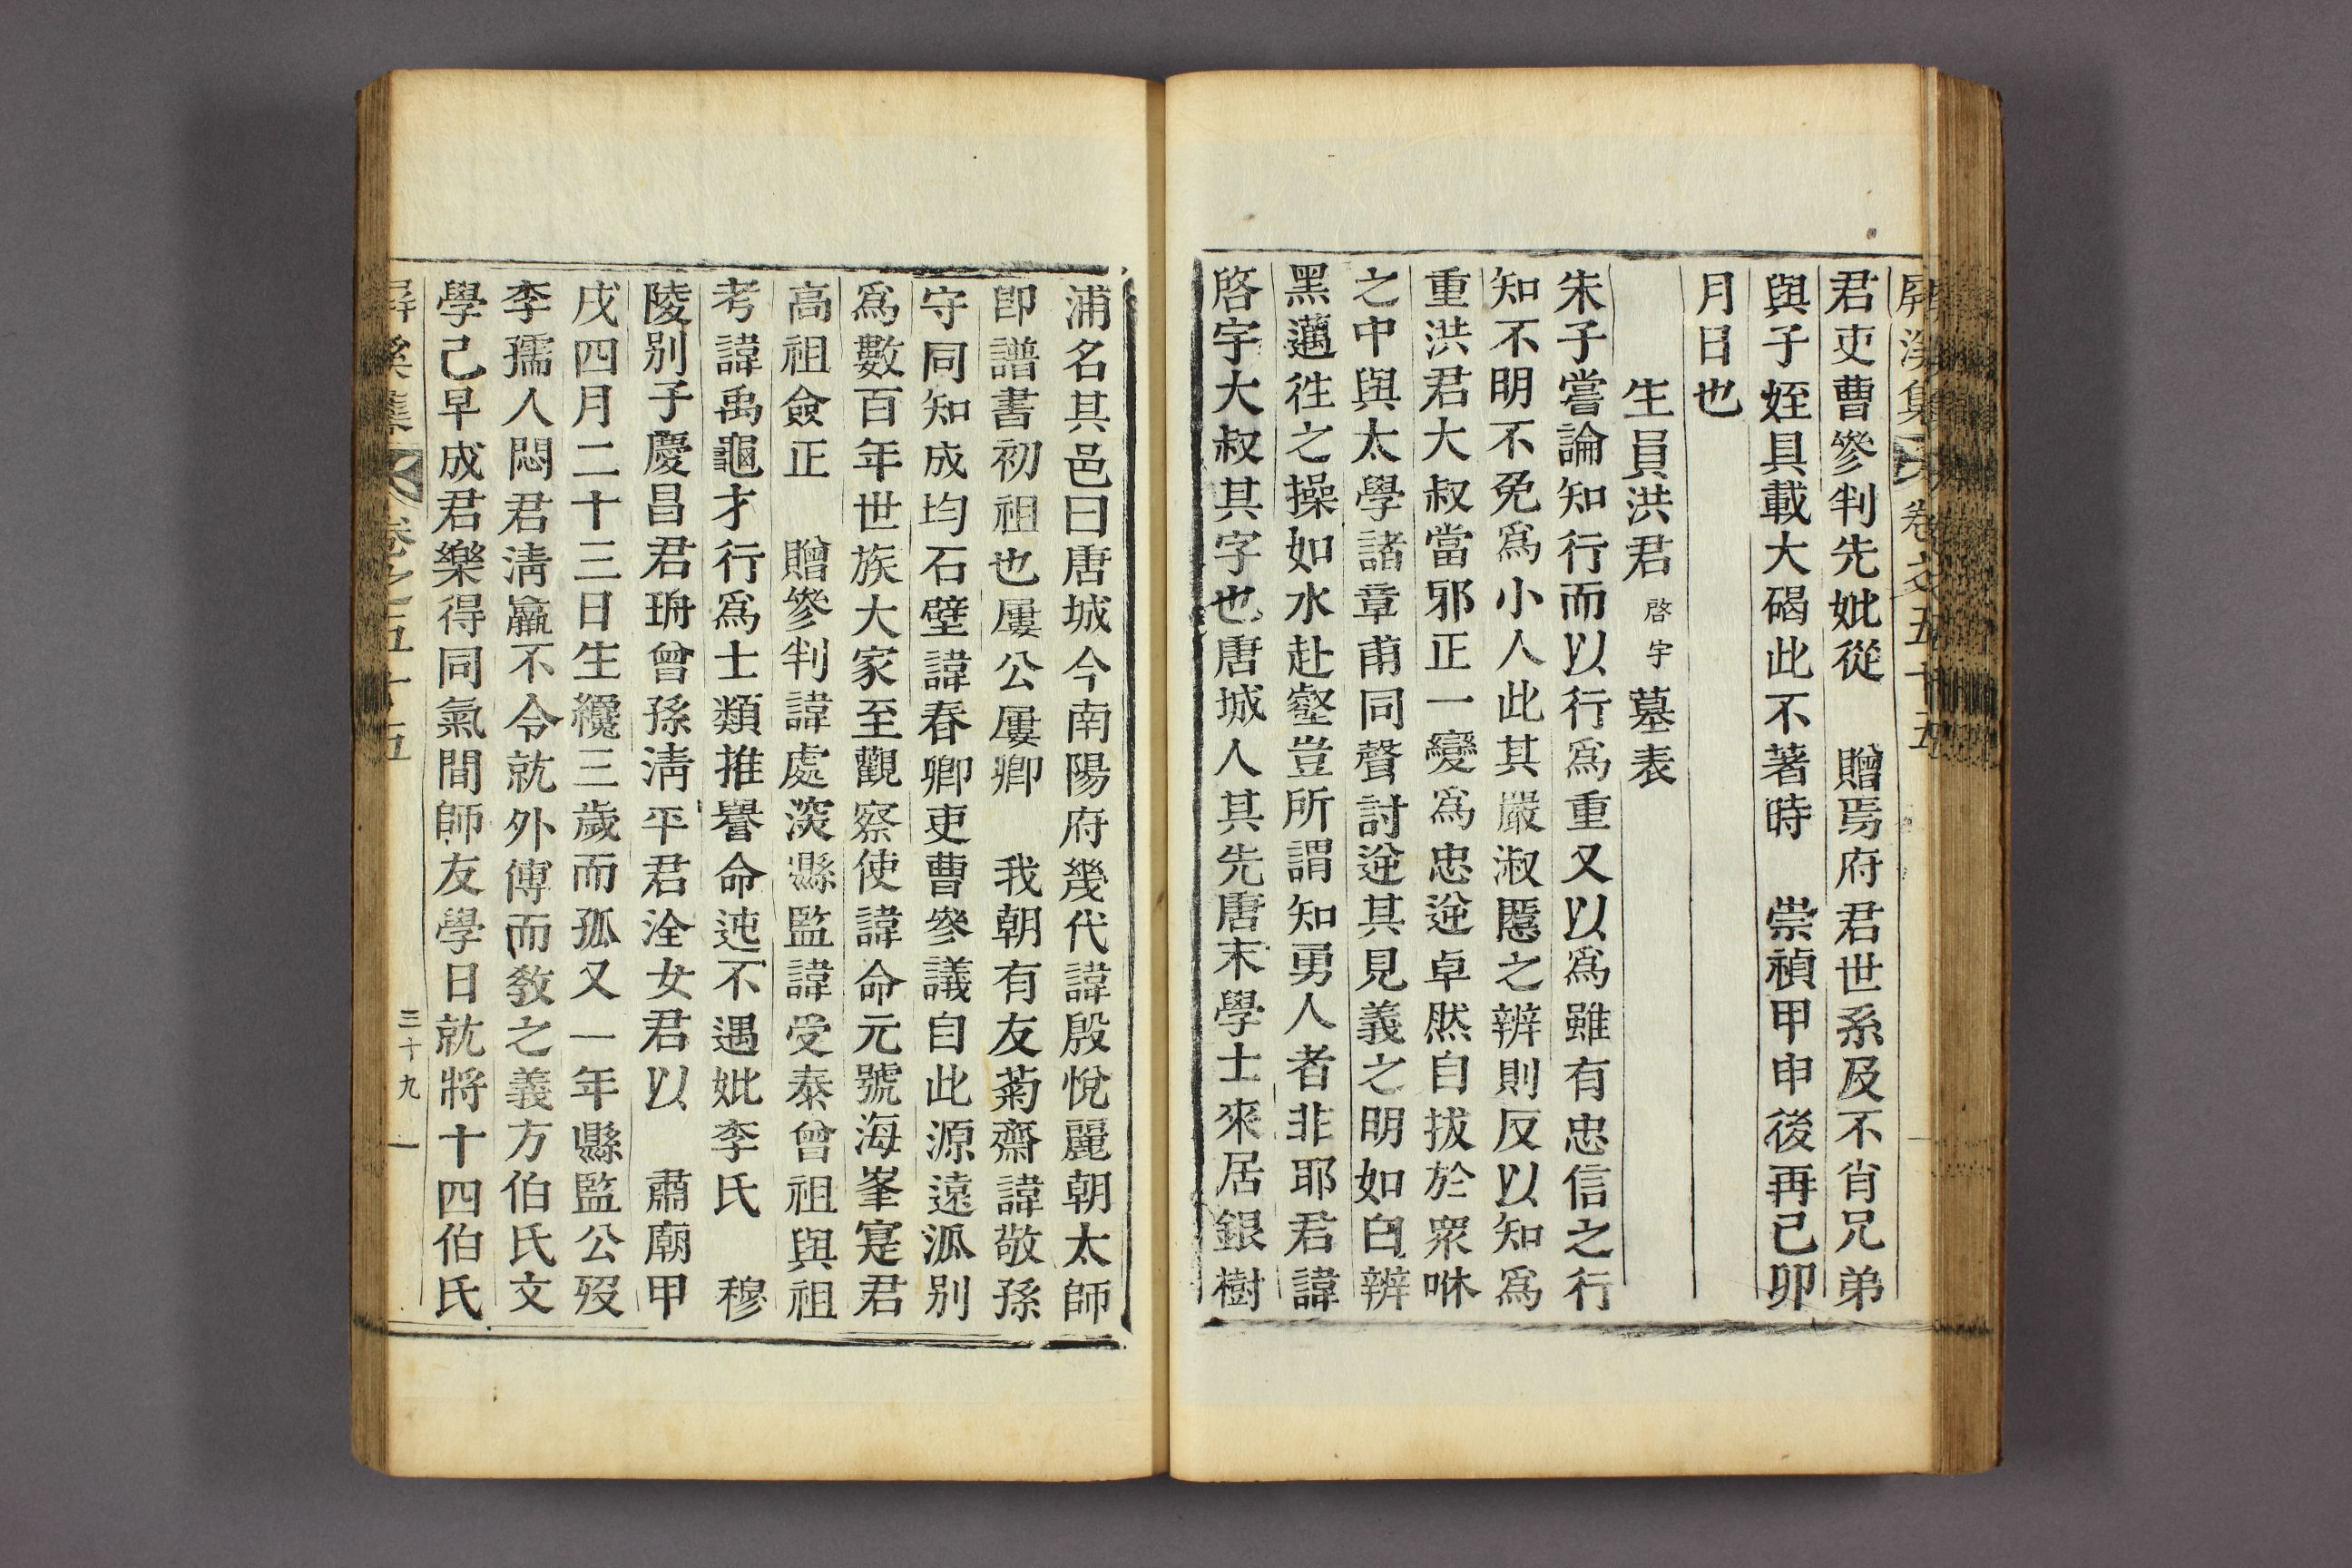 屛溪集 卷之五十五
君吏曹參判先妣從 贈焉府君世系及不肖兄弟
與子姪具載大碣此不著時 崇禎甲申後再己卯
月日也
生員洪君啓宇墓表
朱子嘗論知行而以行爲重又以爲雖有忠信之行
知不明不免爲小人此其嚴淑慝之辨則反以知爲
重洪君大叔當邪正一變爲忠逆卓然自拔於衆咻
之中與太學諸章甫同聲討逆其見義之明如白辨
黑邁往之操如水赴壑豈所謂知勇人者非耶君諱
啓宇大叔其字也唐城人其先唐末學士來居銀樹
浦名其邑曰唐城今南陽府幾代諱殷悅麗朝太師
卽譜書初祖也屢公屢卿 我朝有友菊齋諱敬孫
守同知成均石壁諱春卿吏曹參議自此源遠泒别
爲數百年世族大家至觀察使諱命元號海峯寔君
高祖僉正 贈參判諱處深縣監諱受泰曾祖與祖
考諱禹龜才行爲士類推譽命迍不遇妣李氏 穆
陵别子慶昌君珘曾孫淸平君洤女君以 肅廟甲
戌四月二十三日生纔三歲而孤又一年縣監公歿
李孺人悶君淸羸不令就外傅而敎之義方伯氏文
學己早成君樂得同氣間師友學日就將十四伯氏
屛溪集 卷之五十五 三十九